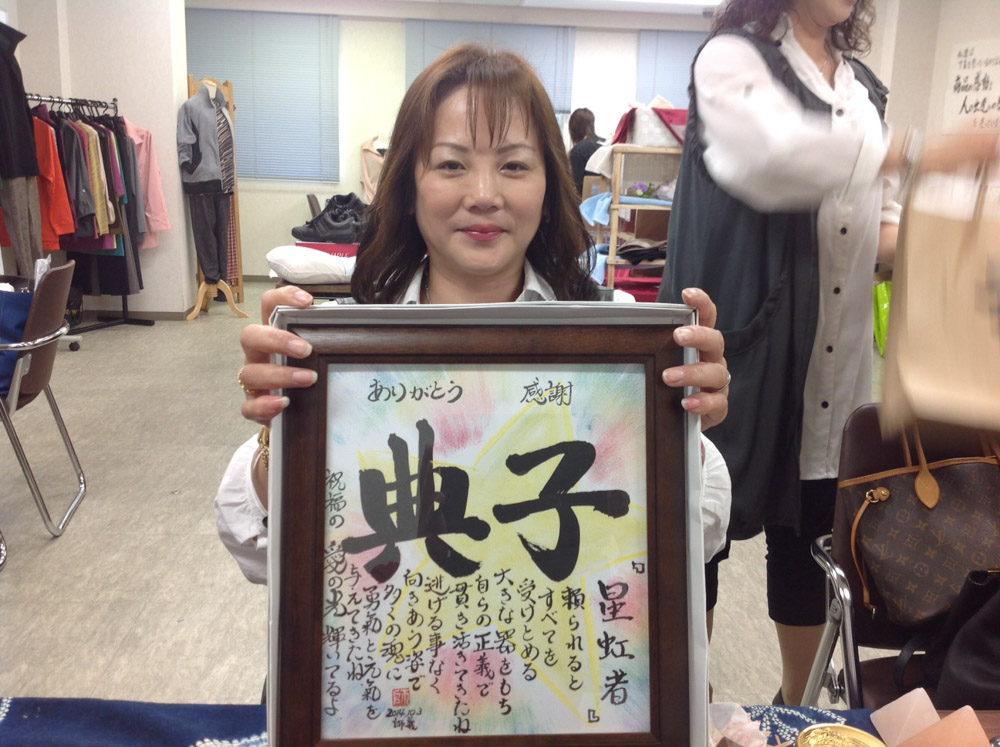 ありがとう
感謝
典子
『星虹者』
頼られると
すべてを
受けとめる
大きな器をもち
自らの正義で
貫き活きてきたね
逃げる事なく
向きあう姿で
多くの魂に
勇氣と元氣を
与えてきたね
祝福の愛の光輝いてるよ
2014.10.3